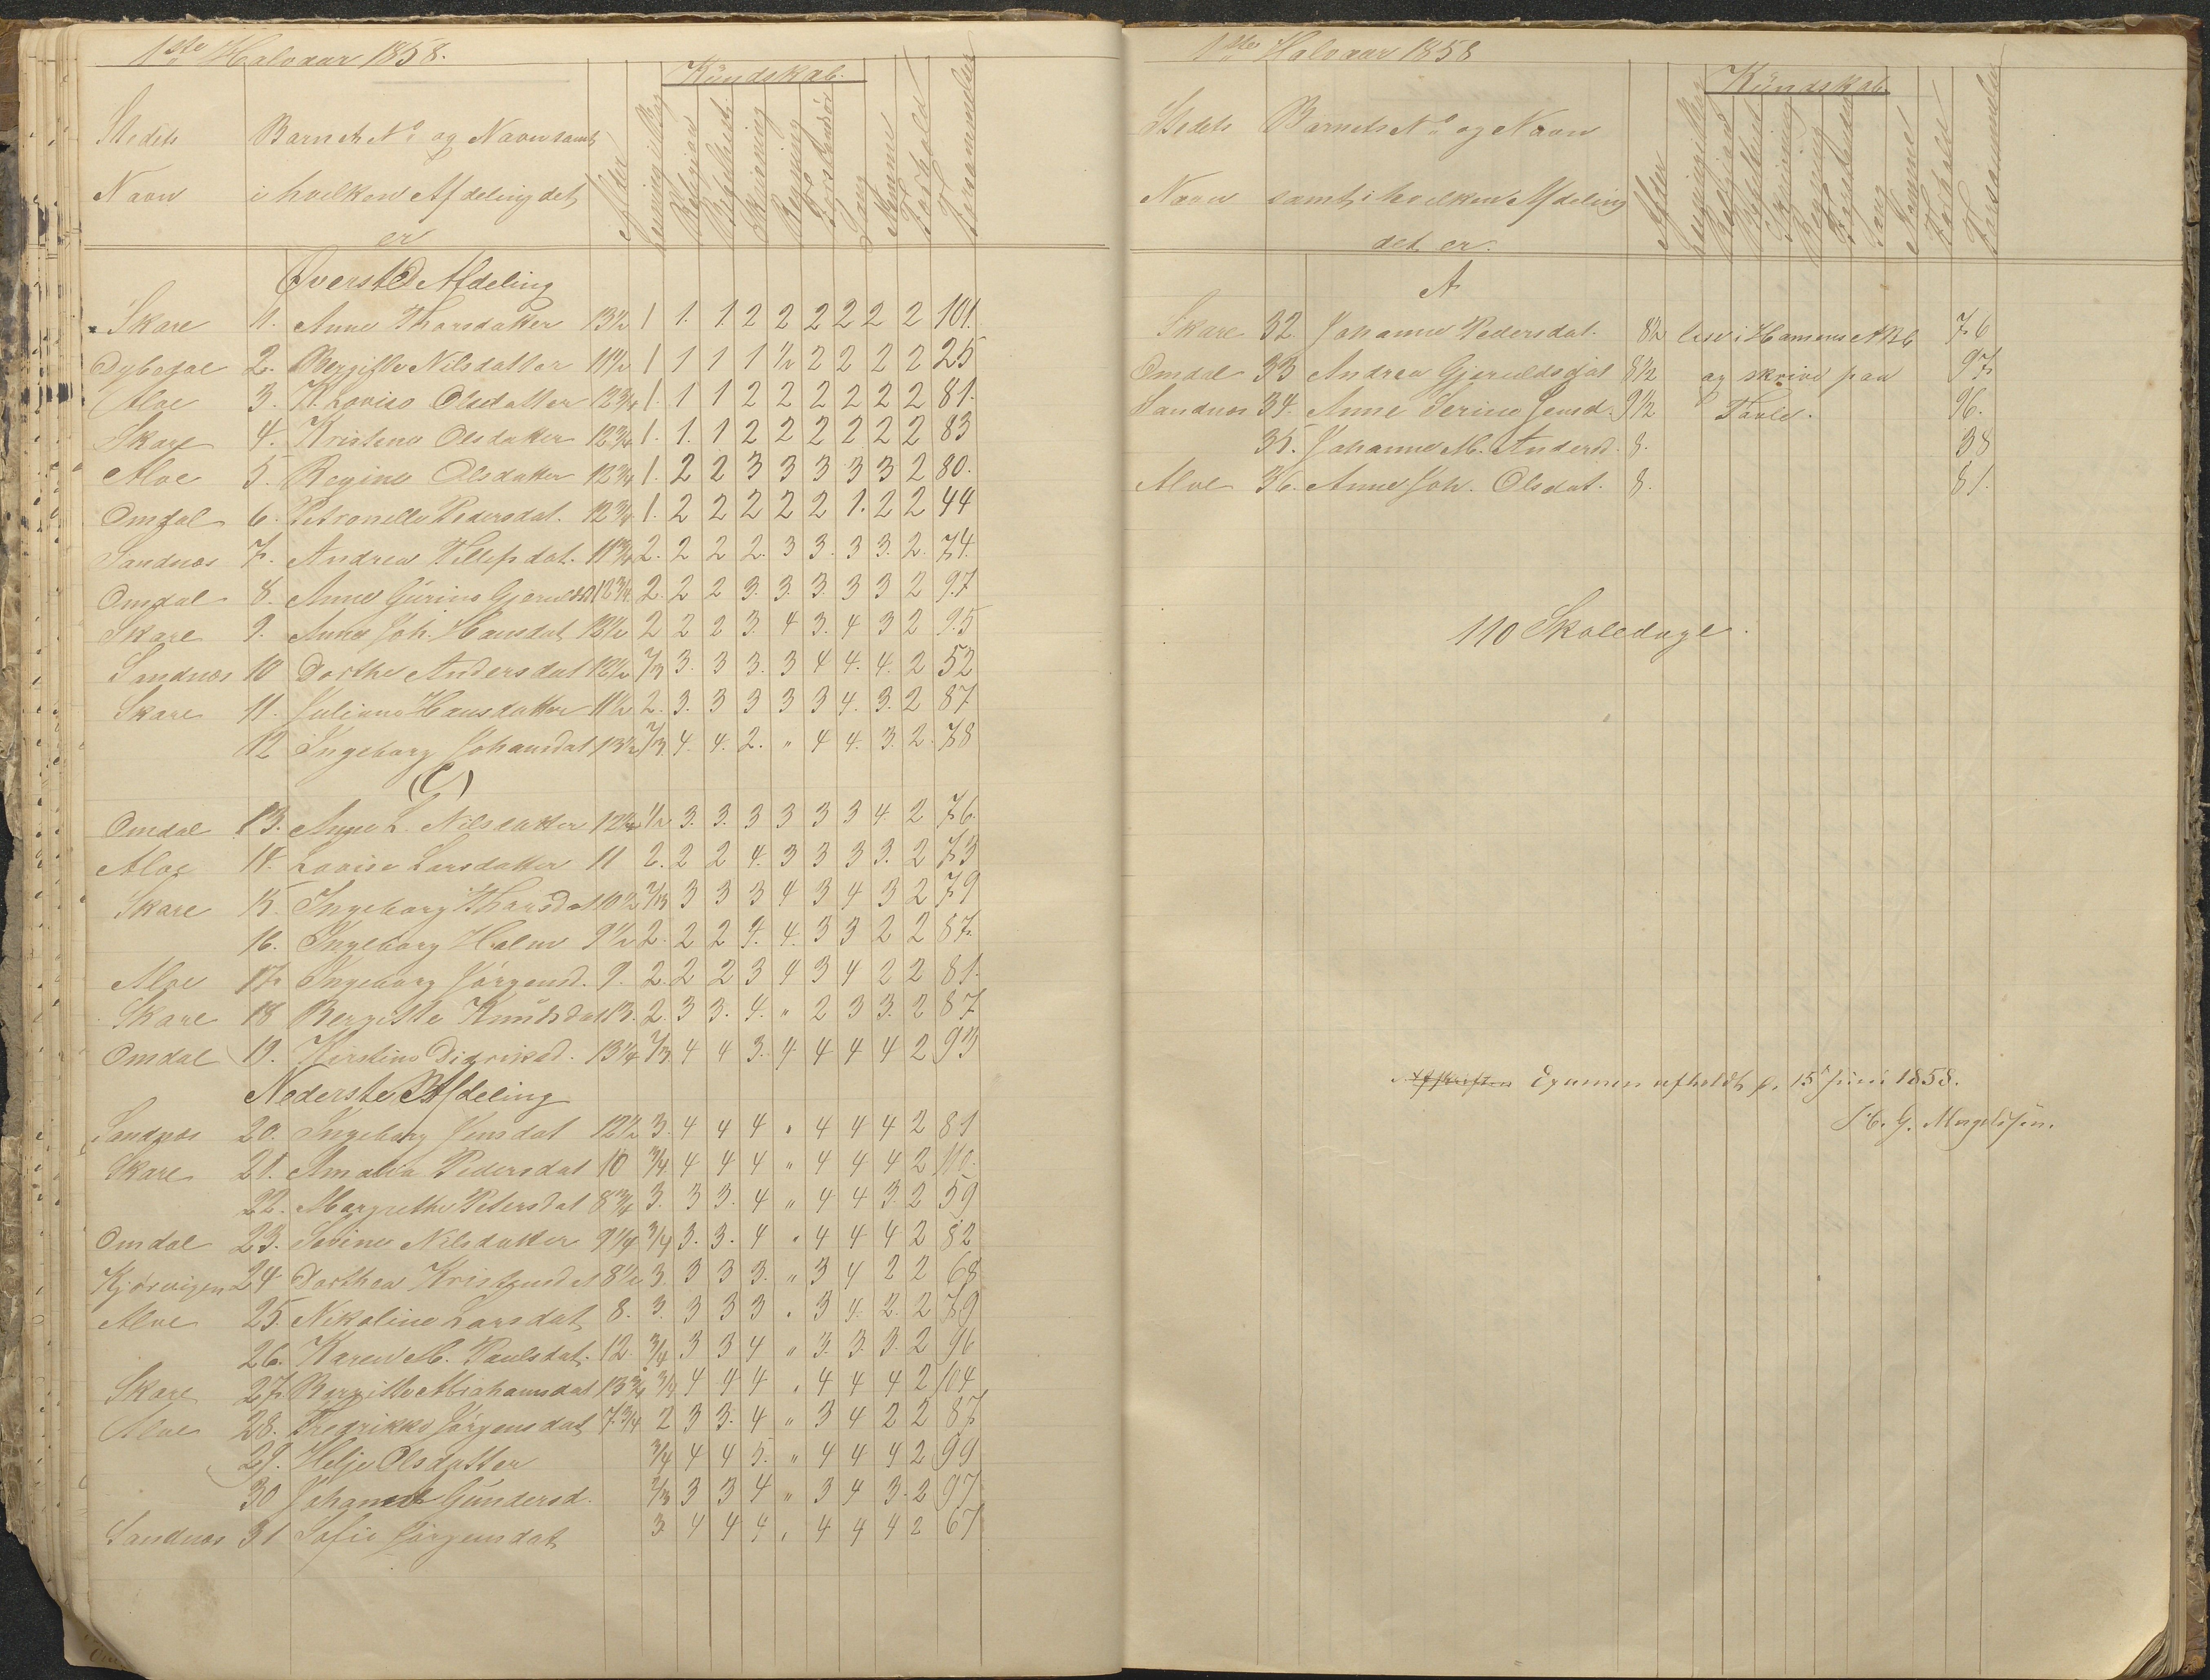 1ste Halvaar 1858.
Kundskab.
Stedets Navn
Barnets No og Navn samt i hvilken Afdeling det er
Alder
Religion
Skrivning
Regning
Sang
Nemme
Forhold
Forsømmelser
Øverste Afdeling
Skare 1. Anne Thorsdatter 13½ 1 1. 1. 2 2 2 2 2 2 101.
2. Bergitte Nilsdatter 11½ 1 1 1 1 ½ 2 2 2 2 25
Aloe 3. K. Lovise Olsdatter 12¾ 1. 1 1 2 2 2 2 2 2 81.
Skare 4. Kristene Olsdatter 12¾ 1. 1. 1 2 2 2 2 2 2 83
Aloe 5. Regine Olsdatter 12¾ 1. 2 2 3 3 3 3 3 2 80.
Omdal 6. Petronelle Pedersdat. 12¾ 1. 2 2 2 2 2 1. 2 2 44
Sandnæs 7. Andrea Tellefsdat. 11¾ 2. 2 2 2. 3 3. 3 3. 2. 74.
Omdal 8. Anne Gurine 12¾ 2. 2 2 3. 3. 3. 3 3 2 97
Skare 9. Anne Joh. Hansdat 2 2 2 3. 4 3. 4 3 2 95
Sandnæs 10 Dorthe Andersdat 12½ 2/3 3. 3 3. 3 4 4. 4. 2 52
Skare 11. Juliane Hansdatter 11½ 2. 3. 3 3 3 3 4. 3. 2 87
12 Ingeborg Johansdat 13½ 2/3 4. 4. 2. " 4 4. 3. 2. 78
(C)
Omdal 13. Anne L. Nilsdatter 12½ ½ 3. 3. 3 3 3 3 4. 2 76.
Aloe 14. Lovise Larsdatter 11 2. 2 2 4. 3 3 3 3. 2 73
Skare 15. Ingeborg Thorsdat 10½ 2/3 3 3 3 4 3 4 3 2 79
16. Ingeborg Holm 9½ 2. 2 2 4. 3 3 2 2 87.
Aloe 17. Ingeborg Jørgensd. 9. 2. 2 2 3 4 3 4 2 2 81.
Skare 18 Bergitte Knudsdat 13. 2. 3 3. 4. " 2 3 3. 2 87
Omdal 19. Kirstine Didriksd. 13¼ 2/3 4 4 3. 4 4 4 4 2 93
Nederste B Afdeling
Sandnæs 20. Ingeborg Jensdat 12½ 3. 4 4 4 " 4 4 4 2 81
Skare 21. Amalia Pedersdat 10 3/4 4 4 4 " 4 4 4 2 110.
22. Margrethe Petersdat 8¾ 3. 3 3. 4 " 4 4 3. 2 59
Omdal 23. Sevine Nilsdatter 9¼ 3/4 3. 3. 4 " 4 4 4 2 82
Kjørvigen 24 Dorthea 8½ 3. 3 3 3. " 3 4 2 2 68
Aloe 25. Nikoline Larsdat 8. 3. 3 3 3 " 3 4. 2 2 79
26. Karen M. Paulsdat. 12. 3/4 3 3 4 " 3. 3. 3. 2 96
Skare 27. Bergitte Abrahamsdat 13¾ 3/4 4 4 4 " 4 4 4 2 104
Aloe 28. Fredrikke Jørgensdat 7¾ 2 3 3. 4 " 3 4 2 2 87
29. Helje Olsdatter 3/4 4 4 5. " 4 4 4 2 99
30 Johanne Gundersd. 2/3 3 3 4 " 3 4 3. 2 97
Sandnæs 31 Sofie Jørgensdat 3 4 4 4 " 4 4 4 2 67
1ste Halvaar 1858
Kundskab
Stedets Navn
Barnets No og Navn samt i hvilken Afdeling det er.
Alder
Religion
Skrivning
Regning
Sang
Nemme
Forhold
Forsømmelser
A
Skare 32. Johanne Pedersdat. 8½ læse i Hansens ABC 76
Omdal 33 Andrea Gjeruldsdat 8½ og skrive paa 97
Sandnæs 34. Anne Serine Jensd. 9½ Tavle. 96.
35. Johanne M. Andersd. 8. 38
Aloe 36. Anne Joh. Olsdat. 8. 81.
110 Skoledage.
Examen afholdt d. 15 Juni 1858.